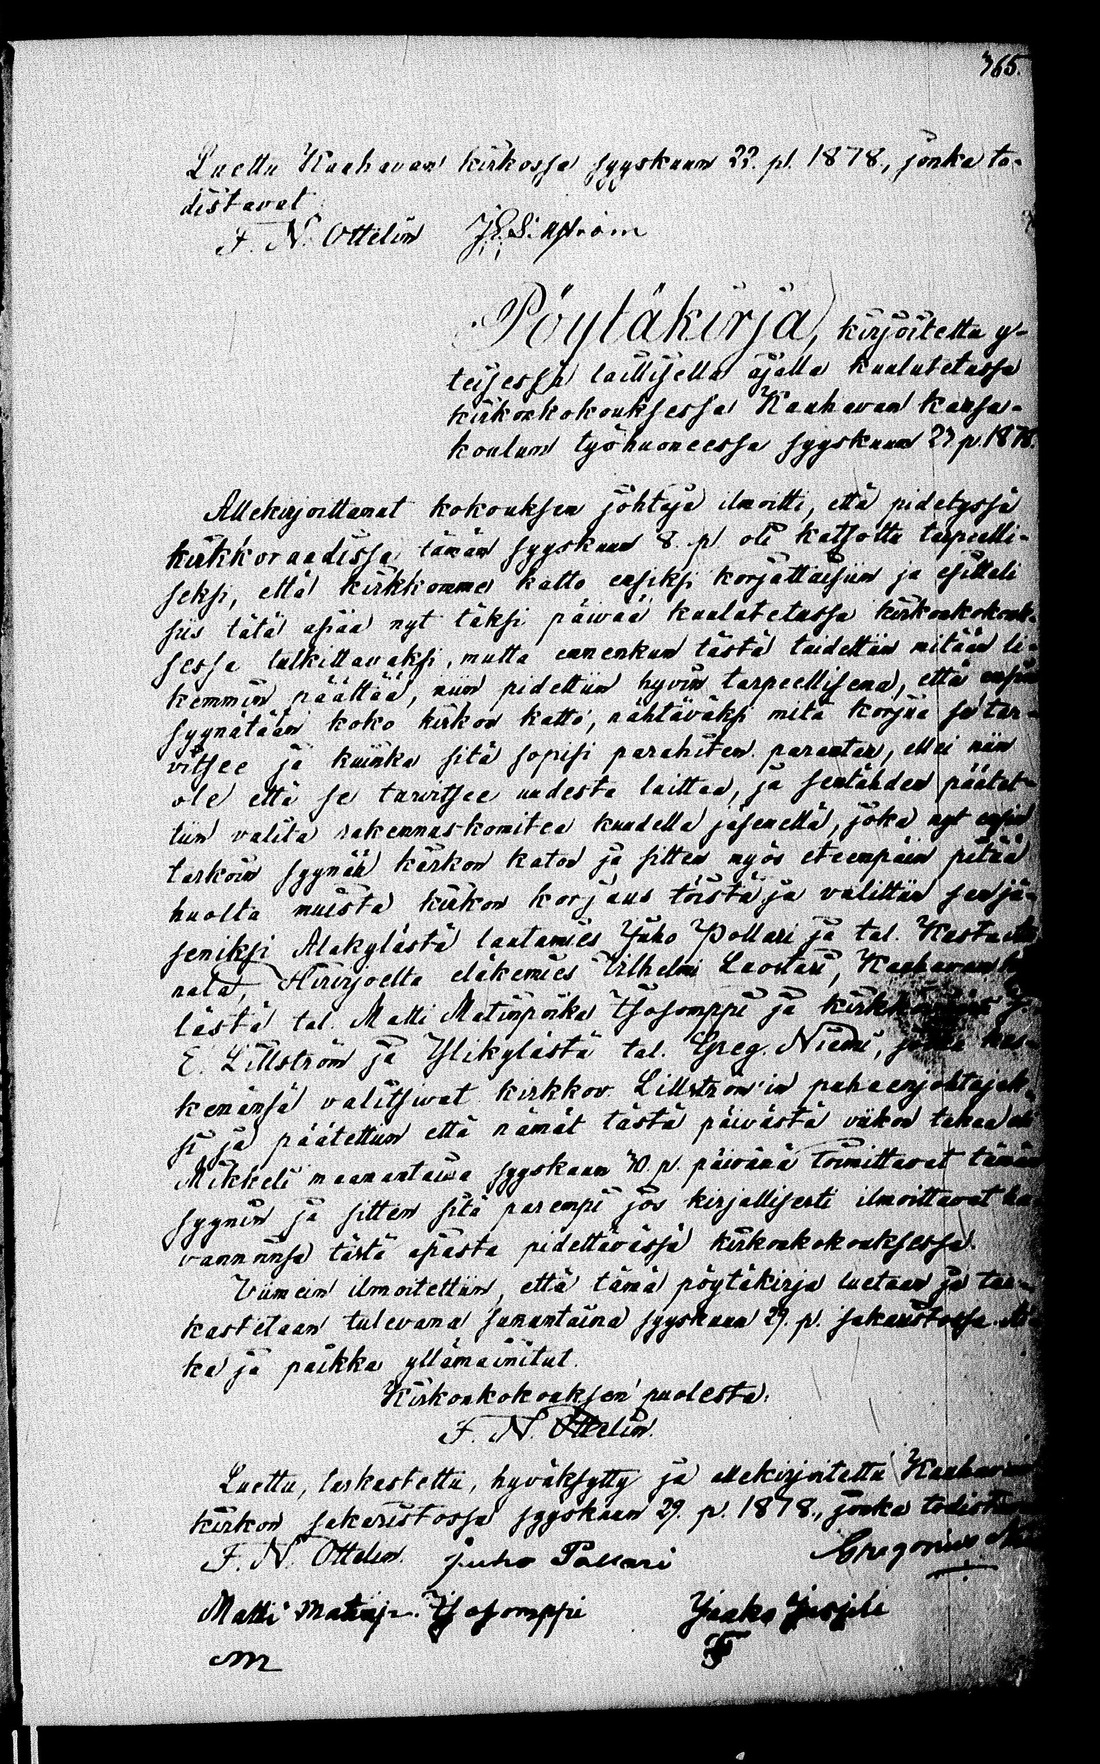 365.
Luettu Kauhavan kirkossa syyskuun 22. p. 1878., jonka to-
distavat
F. N. Ottelin J. E. Lillström
Pöytäkirja, kirjoitettu y-
teisessä laillisella ajalla kuulutetussa
kirkonkokouksessa Kauhavan kansa-
koulun työhuoneessa syyskuun 23 p. 1878.
Allekirjoittanut kokouksen johtaja ilmoitti, että pidetyssä
kirkkoraadissa tämän syyskuun 8. p. oli katsottu tarpeelli-
seksi, että kirkkomme katto ensiksi korjattaisiin ja esitteli
siis tätä asiaa nyt täksi päivää kuulutetussa kirkonkokouk-
sessa tutkittavaksi, mutta ennenkun tästä taidettiin mitään li-
kemmin päättää, niin pidettiin hyvin tarpeellisena, että ensin
syynätään koko kirkon katto, nähtäväksi mitä korjua se tar-
vitsee ja kuinka sitä sopisi parahiten parantaa, ellei niin
ole että se tarvitsee uudesta laittaa, ja sentähden päätet-
tiin valita rakennus-komitea kuudella jäsenellä, joka nyt ensin
tarkoin syynää kirkon katon ja sitten myös eteenpäin pitää
huolta muista kirkon korjaus töistä ja valittiin sen jä-
seniksi Alakylästä lautamies Juho Pollari ja tal. Kustaa
nala, Hirvijoelta eläkemies Vilhelmi Laostari, Kauhavan ky-
lästä tal. Matti Matinpoika Isosomppi ja kirkk J.
E. Lillström ja Ylikylästä tal. Greg. Niemi, jotka kes-
kenänsä valitsivat kirkkov. Lillström'in puheenjohtajak-
si ja päätettiin että nämät tästä päivästä viikon takaa eli
Mikkeli maanantaina syyskuun 30. p. päivänä toimittavat tämän
syynin ja sitten sitä parempi jos kirjallisesti ilmoittavat ha-
vannonsa tästä asiasta pidettävässä kirkonkokouksessa.
Viimein ilmoitettiin, että tämä pöytäkirja luetaan ja tar-
kastetaan tulevana sunnuntaina syyskuun 29. p. sakaristossa. Ai-
ka ja paikka yllämainitut.
Kirkonkokouksen puolesta:
F. N. Ottelin.
Luettu, tarkastettu, hyväksytty ja allekirjoitettu Kauhavan
kirkon sakaristossa syyskuun 29. p. 1878., jonka todistavat
F. N. Ottelin. Juho Pollari Gregorius Niemi
Matti Matinp. Isosomppi Jaako